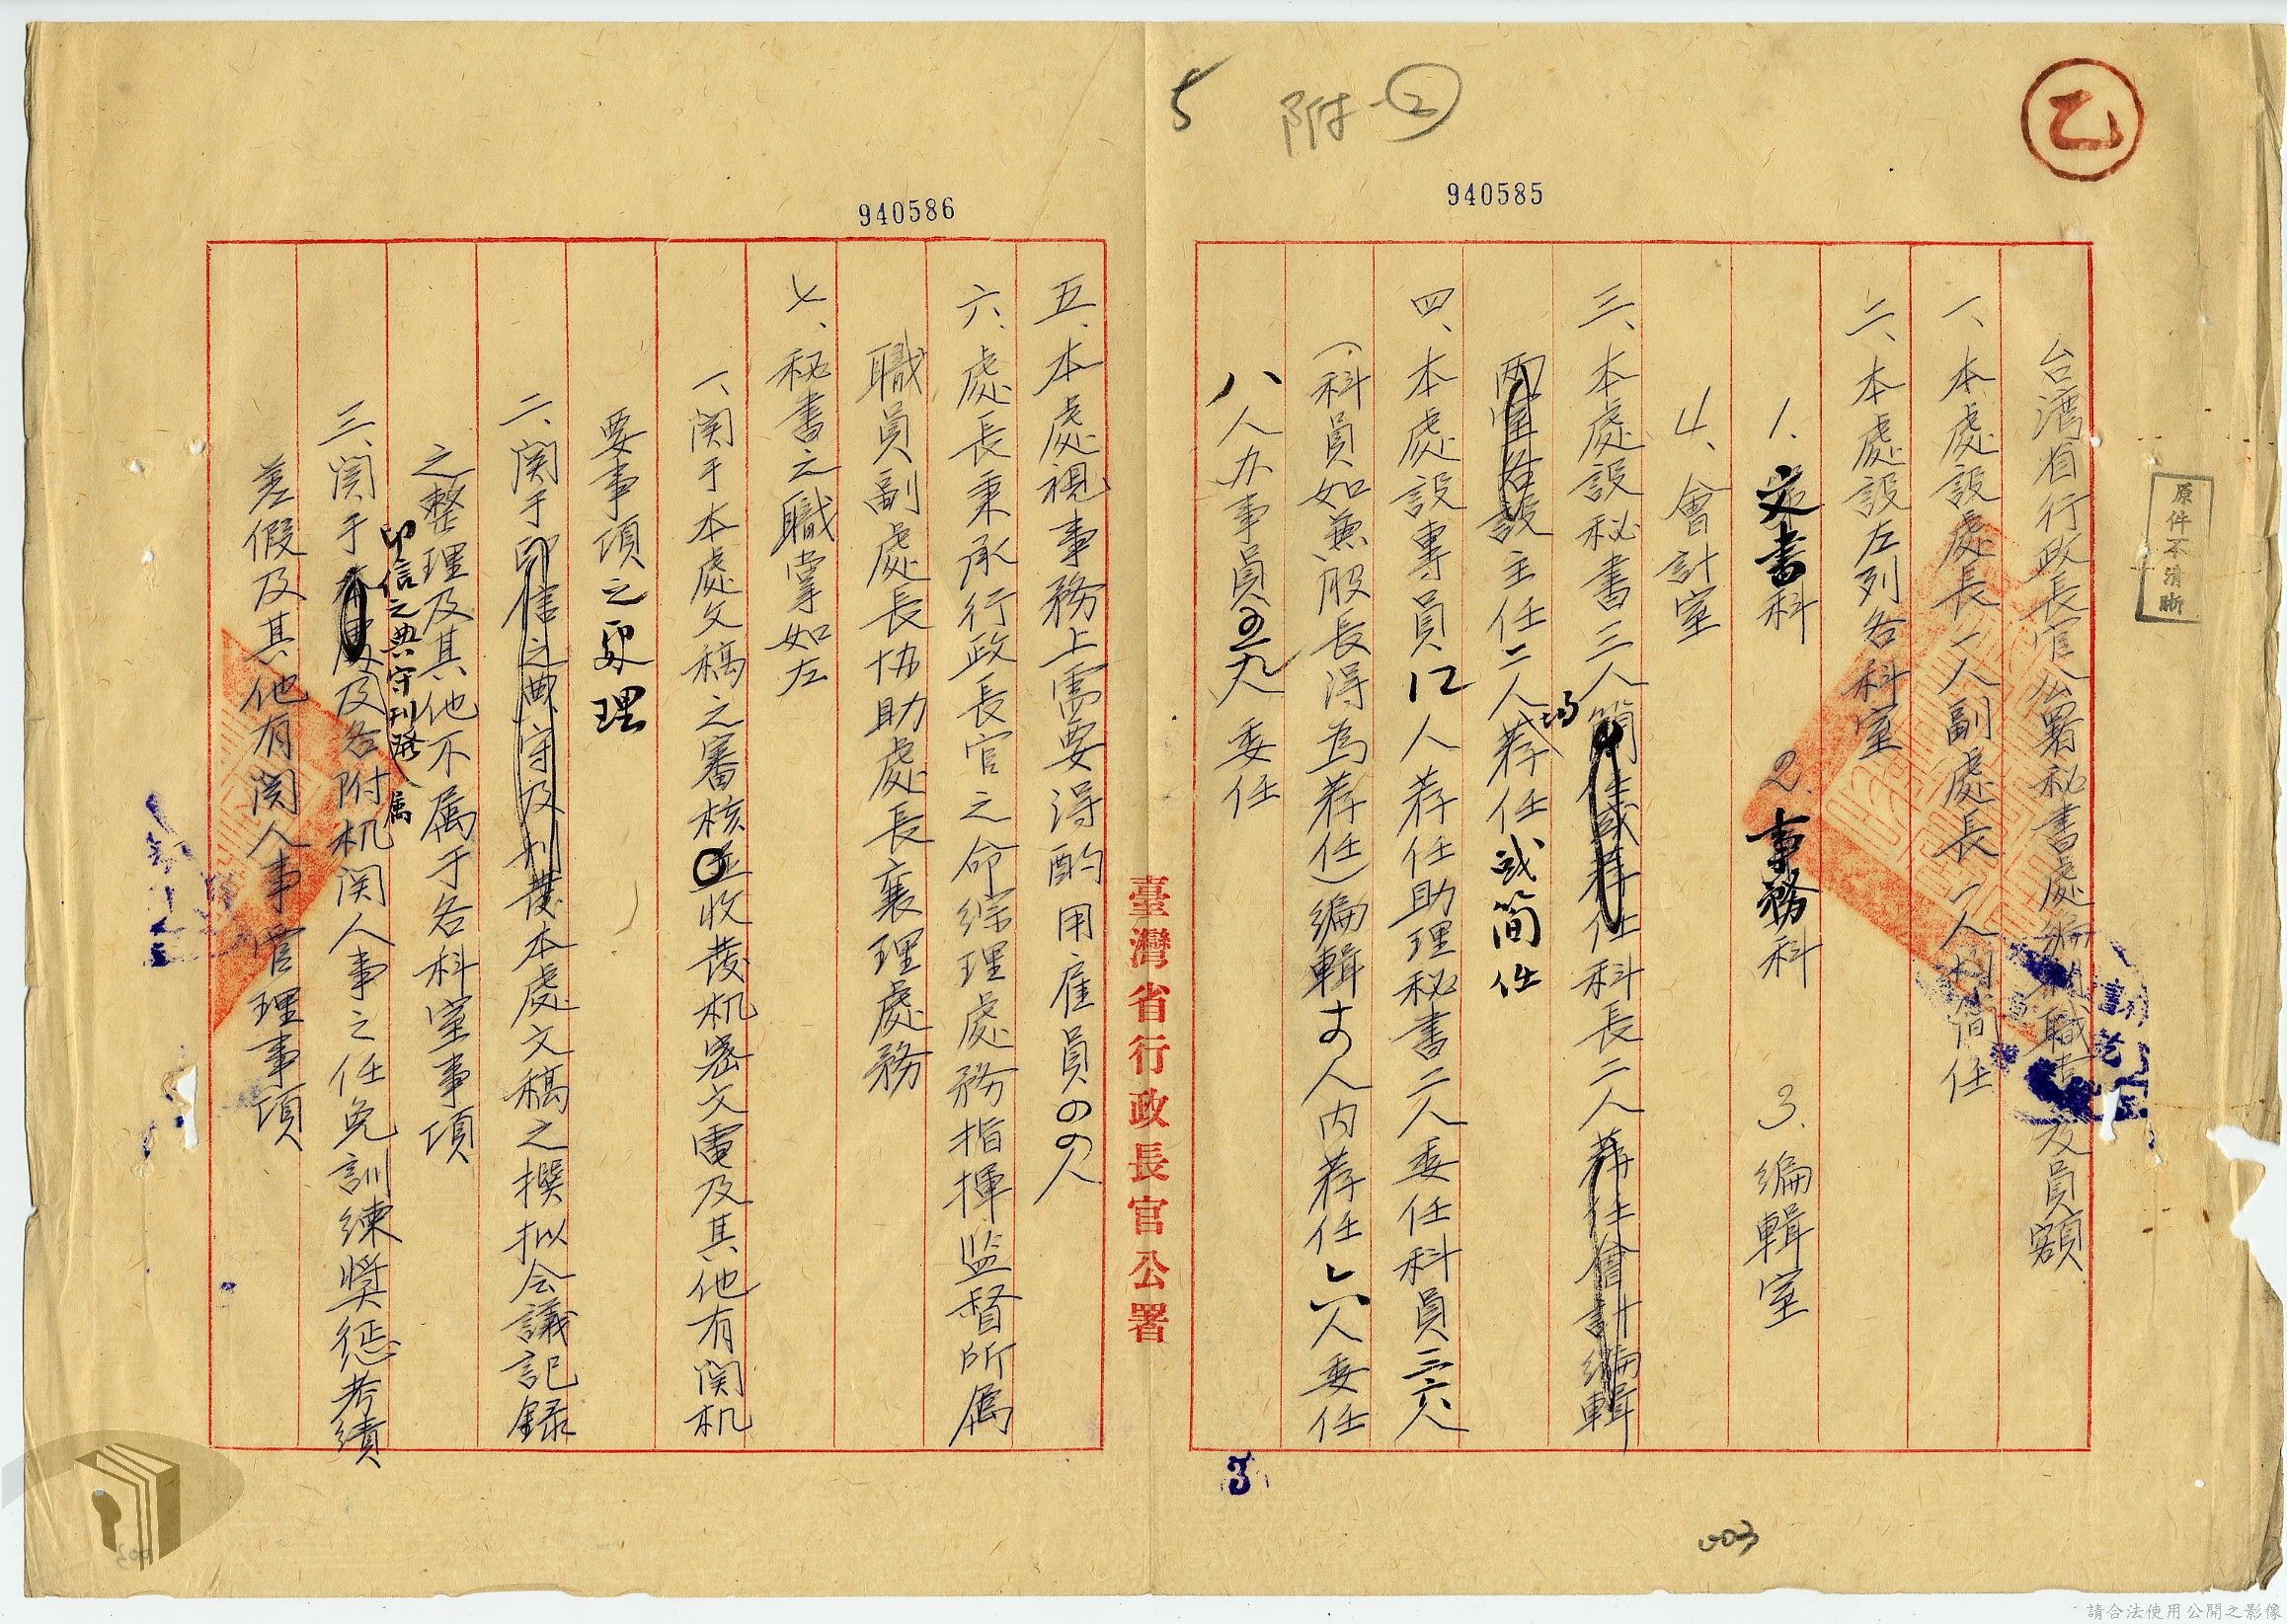 乙
附-②
5
940585
原件不清晰
台灣省行政長官公署秘書處編制職責及員額
一、本處設處長一人副處長一人均簡任
二、本處設左列各科室
1.文書科 2.事務科 3.編輯室
4、會計室
三、本處設秘書三人簡任或荐任科長二人荐任會計編輯
兩室各設主任二人均荐任或简任
四、本處設專員12人荐任助理秘書二人委任科員三六人
(科員如兼股長得為荐任)編輯十の人內荐任六人委任
八人办事員の九人委任
臺灣省行政長官公署
3
003
940586
五、本處視事務上需要得酌用雇員のの人
六、處長秉承行政長官之命綜理處務指揮監督所屬
職員副處長协助處長襄理處務
七、秘書之職掌如左
一、関于本處文稿之審核並收發机密文電及其他有関机
要事項之處理
二、関于印信之典守及刊發本處文稿之撰拟会議記録
之整理及其他不属于各科室事項
印信之典守刊發
属
三、関于本處及各附机関人事之任免訓練獎惩考績
差假及其他有関人事管理事項
請合法使用公開之影像